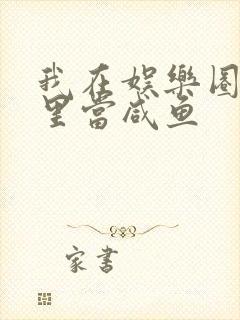 我在娱樂圈
里當咸鱼
家書